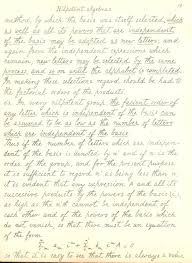 Nilpotent Algebras
method, by which the basis was itself selected, which
as well as all its powers that are independent
of the basis may be adopted as new letters; and
again from the independent expressions which
remain, new letters may be selected by the same
process, and so on until the alphabet is completed.
In making these selections regard should be had to
the factorial orders of the products.
In every nilpotent group, the facient order of
any letter which is independent of the basis can
be assumed to be as low as the number of letters
which are independent of the basis.
Thus if the number of letters which are indepen-
dent of the basis is denoted by and if n is the
order of the group, and for the present purpose
it is sufficient to regard as being less than n,
it is evident that any expression A and all its
successive products by the powers of the basis
as high as the cannot be independent of
each other and of the powers of the basis which
do not vanish, so that there must be an equation
of the form
so that it is easy to see that there is always